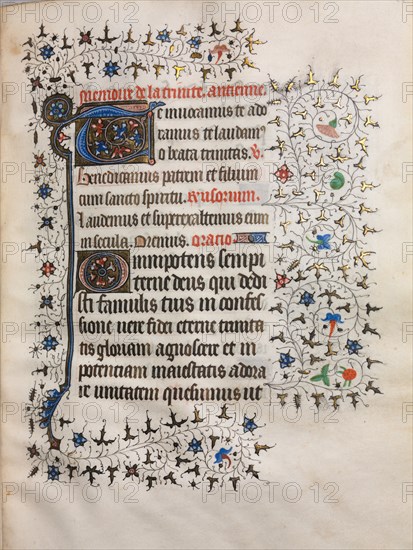 Memoire de la trinite. antienne
Te inuocamus te ado
ramus te laudam9
o beata trinitas. V.
Benedicamus patrem et filium
cum sancto spiritu. Responsorium.
Laudemus et superexaltemus eum
in secula. Oremus. oracio
Omnipotens sempi
terne deus qui dedi
sti famulis tuis in confes
sione uere fidei eterne trinita
tis gloriam agnoscere et in
potenciam maiestatis adora
re unitatem quesumus ut